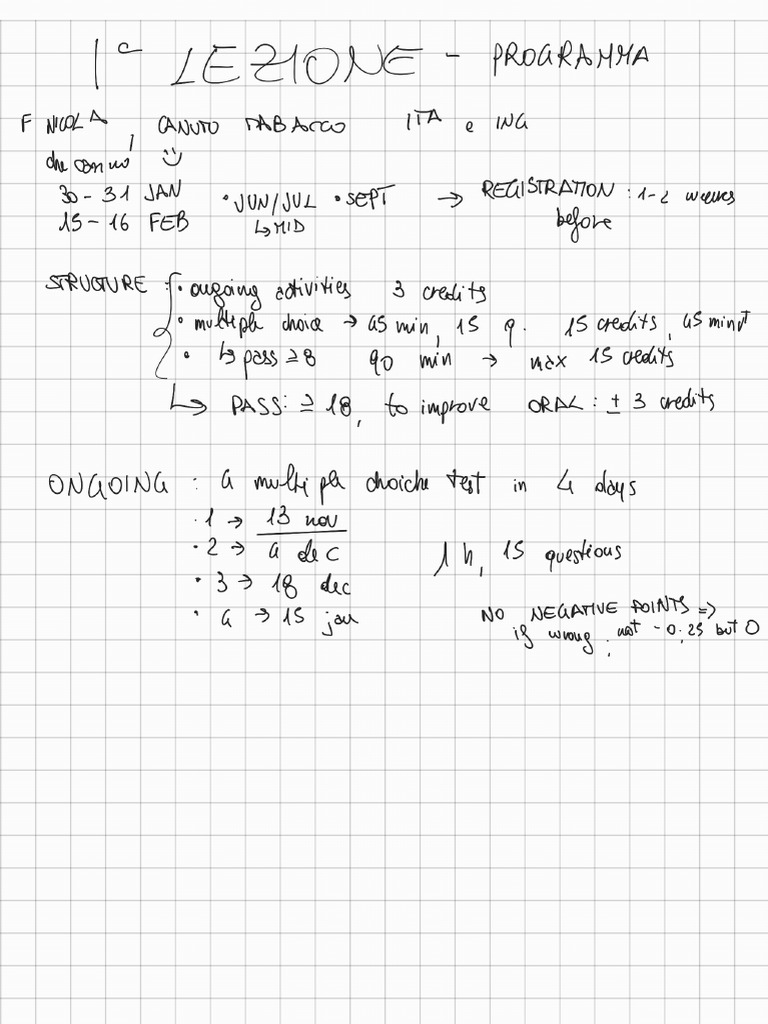 1ª LEZIONE - PROGRAMMA
F NICOLA, CANUTO TABACCO ITA e ING
che
30 - 31 JAN • JUN/JUL • SEPT → REGISTRATION : 1-2 weeks
15 - 16 FEB ↳ MID before
STRUCTURE : • ongoing activities 3 credits
• multiple choice → 45 min, 15 q. 15 credits, 45 minut
• ↳ pass ≥ 8 90 min → max 15 credits
↳ PASS: ≥ 18, to improve ORAL : ± 3 credits
ONGOING : 4 multiple choiche test in 4 days
• 1 → 13 nov
• 2 → 4 dec 1 h, 15 questions
• 3 → 18 dec
• 4 → 15 jan NO NEGATIVE POINTS =>
if wrong, not -0,25 but 0